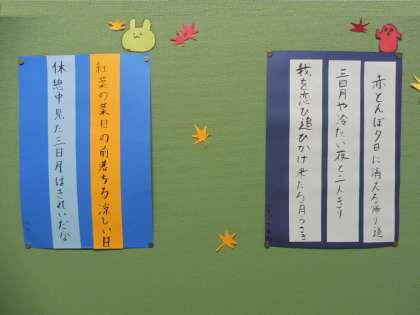 赤とんぼ夕日に消える帰り道
三日月や冷たい夜と二人きり
我を恋ひ追ひかけ来たる月うさぎ
紅葉の葉目の前落ちる涼しい日
休憩中見た三日月はきれいだな